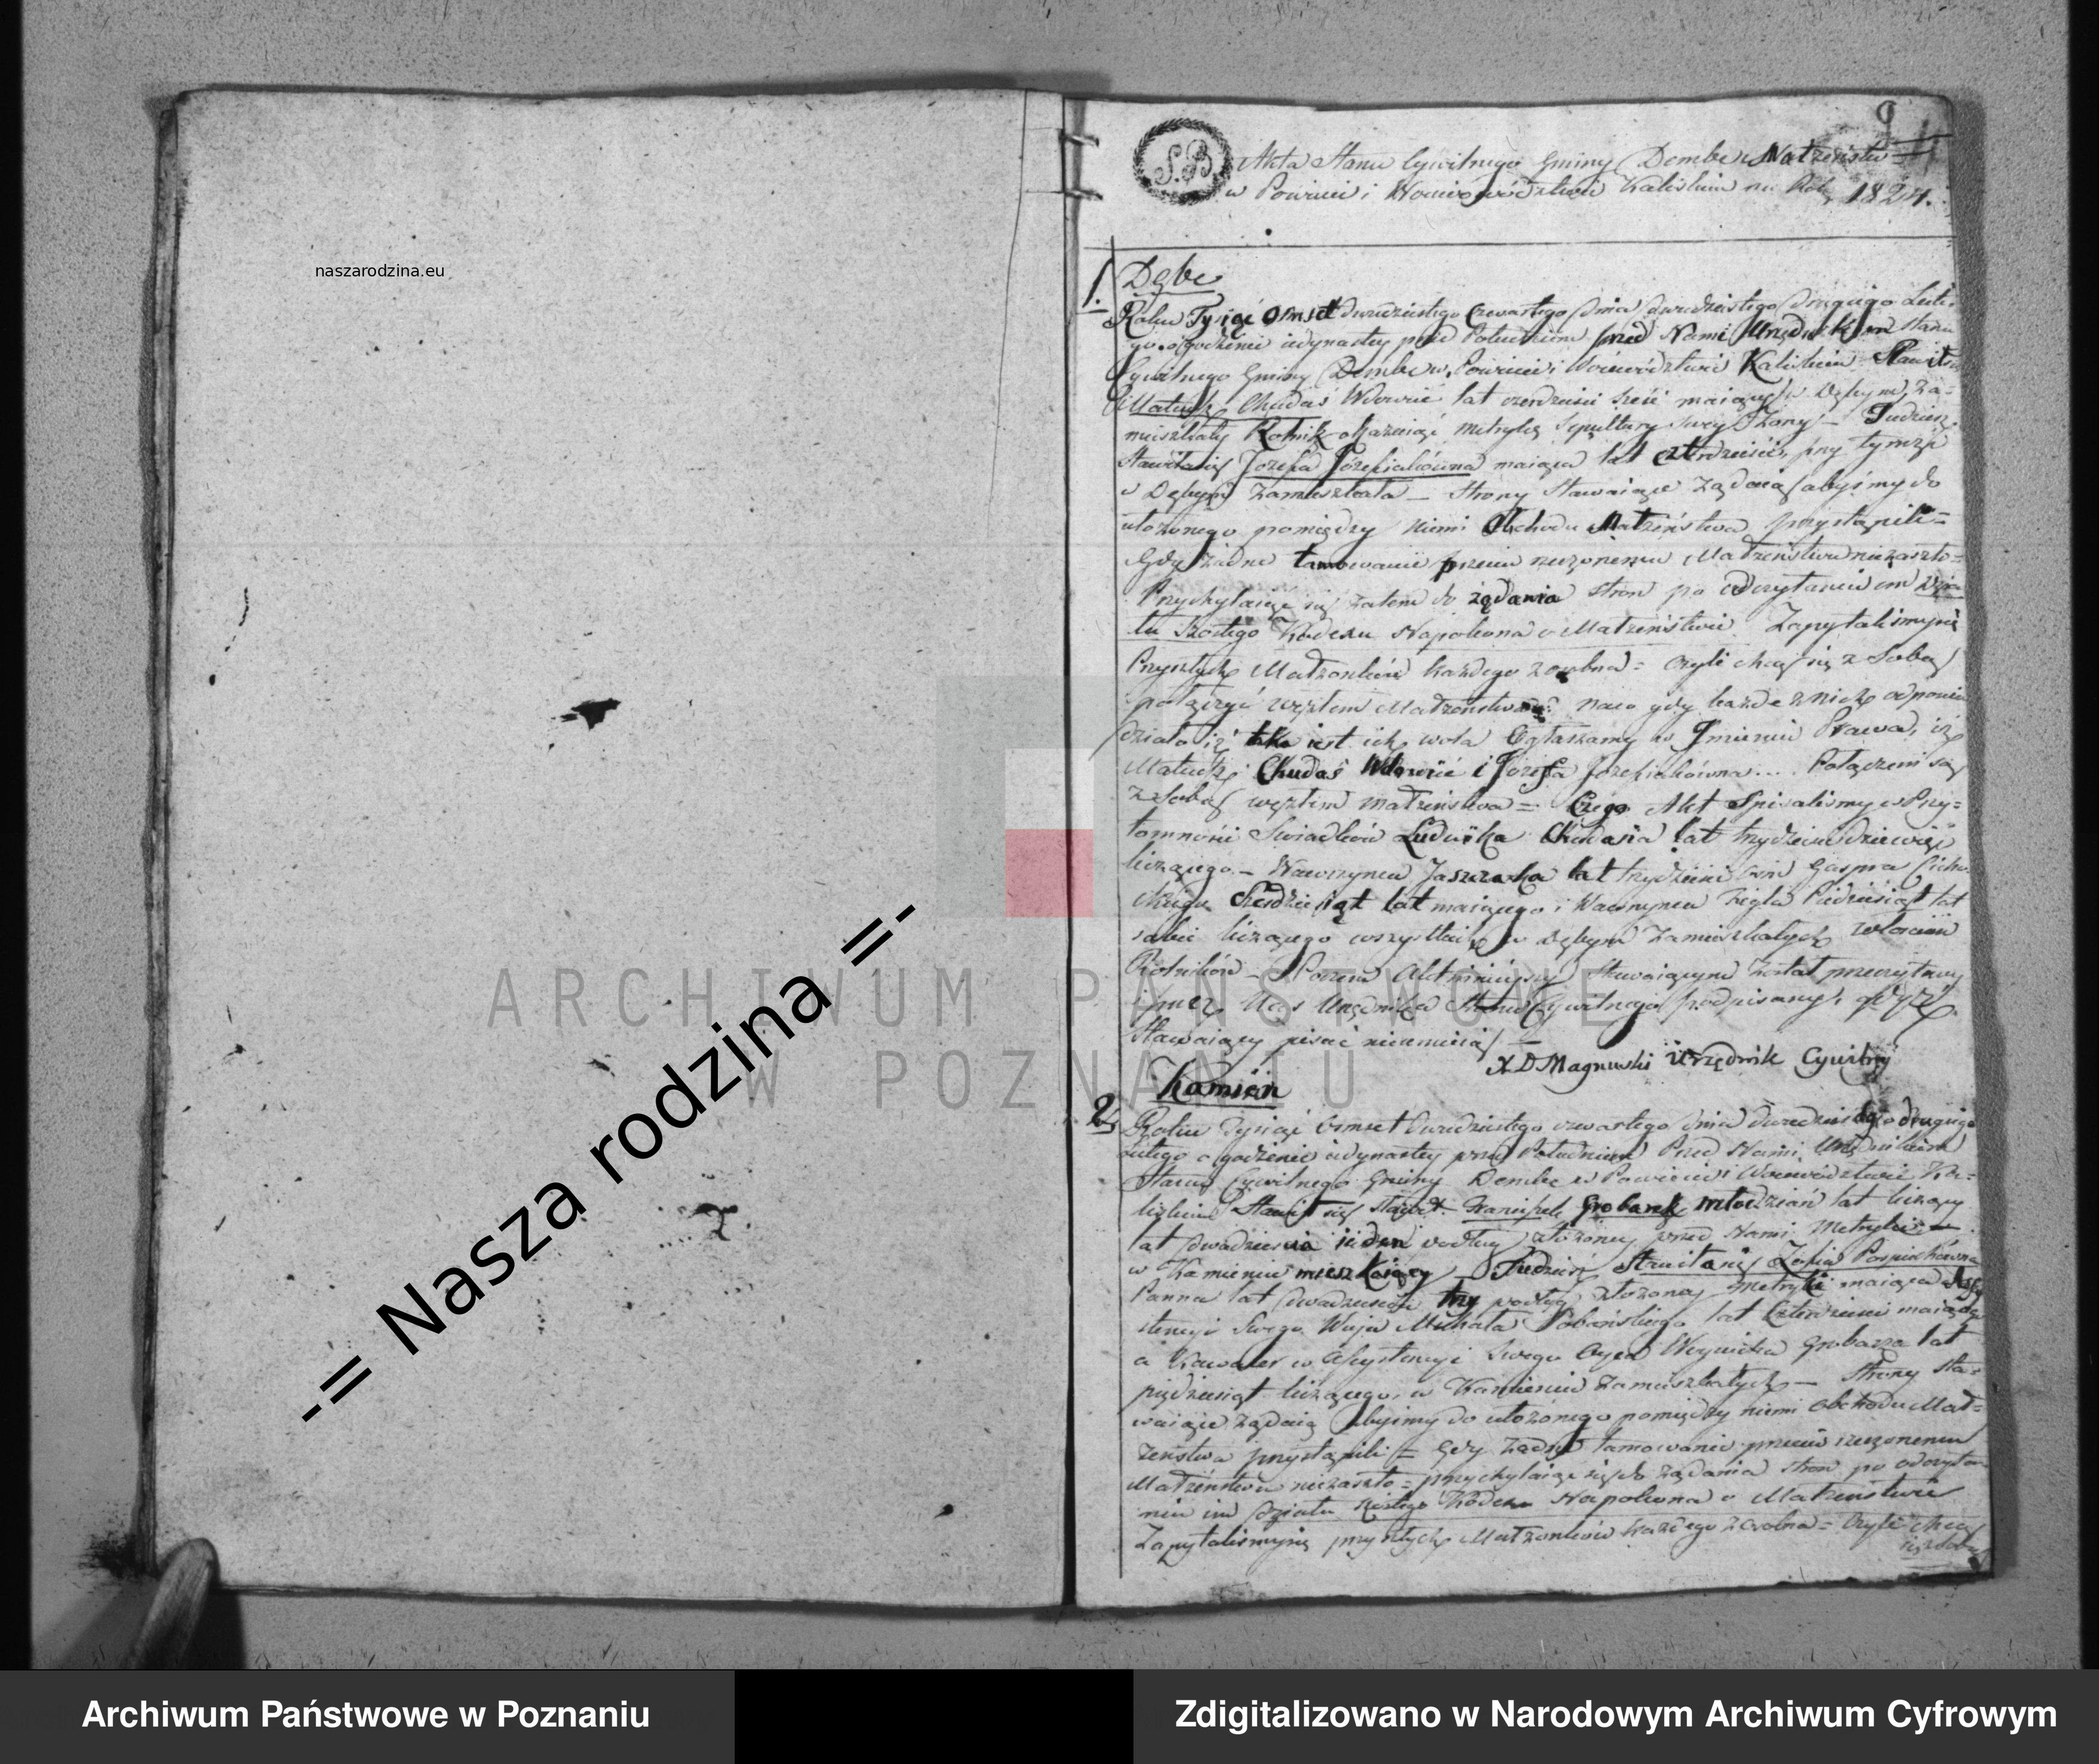 naszarodzina.eu
-= Nasza rodzina =-
9
S.B
Akta Stanu Cywilnego Gminy Dembe Małżeństw
w Powiecie i Woiewództwie Kaliskim na Rok 1824.
1. Dębe
Roku Tysiąć Osmset dwudziestego Czwartego Dnia dwudziestego drugiego Lute-
go o godzinie iedynastey przed Południem przed Nami Urzędnikiem Stanu
Cywilnego Gminy Dembe w Powiecie i Woiewództwie Kaliskim Stawił się
Chudaś Wdowiec lat czterdzieści sześć maiący w Dębym Za-
mieszkały Rolnik okazuiąć Metrykę Sepultury Swey Żony – Tudzież
Stawiła się Jozefa Józefiakówna maiąca lat czterdzieści, przy tymże
w Dębym Zamieszkała – Strony Stawaiące Żądaią abyśmy do
ułożonego pomiędzy niemi Obchodu Małżeństwa przystąpili =
Gdy żadne tamowanie przeciw rzeczonemu Małżeństwu niezaszło =
Przychylaiąć się zatem do żądania stron po odczytaniu im Dzia-
łu Szostego Kodexu Napoleona o Małżeństwie. Zapytaliśmy się
Przyszłych Małżonków każdego z osobna = czyli chcą się z Sobą
połączyć węzłem Małżeństwa? na co gdy każde z nich odpowie-
działo iż taka iest ich wola Ogłaszamy w Jmieniu Prawa, iż
Chudaś Wdowiec i Jozefa Jozefiakówna .... Połączeni są
z Sobą węzłem małżeństwa = Czego Akt Spisaliśmy w Przy-
tomności Swiadków Ludwika Chudasia lat trzydzieści dziewięć
liczącego – Wawrzynca Jaszczaka lat trzydzieści Gaspra
lat maiącego i Wawrzynca Piędziesiąt lat
sobie liczącego wszystkich w Dębym Zamieszkałych włoscian
Rolników – Poczem Akt ninieyszy Stawaiącym został przeczytany
i przez Nas Urzędnika Stanu Cywilnego podpisany, gdyż
Stawaiący pisać nieumieią –
X. D Magnuski Urzędnik Cywilny
2. Kamień
Roku Tysiąć Osmset Dwudziestego czwartego Dnia Dwudziestego drugiego
Lutego o godzinie iedynastey przed Południem Przed Nami Urzędnikiem
Stanu Cywilnego Gminy Dembe w Powiecie i Woiewództwie Ka-
liskim Stawił się Franciszek Grobarek młodzian lat liczący
lat dwadzieścia ieden według złożoney przed Nami Metryki –
w Kamieniu mieszkaiący – Tudzież Stawiła się Zofia Pospiechówna
Panna lat dwadzieścia trzy podług złożoney Metryki maiąca Asy-
stencyi Swego Wuja Michała lat Czterdzieści maiącego
a Kawaler w Assystencyi Swego Oyca Woyciecha Grobarza lat
pięćdziesiąt liczącego, w Kamieniu Zamieszkałych – Strony Sta-
waiące żądaią abyśmy do ułożonego pomiędzy niemi obchodu Mał-
żeństwa przystąpili = Gdy żadne tamowanie przeciw rzeczonemu
Małżeństwu niezaszło = przychylaiąc się do żądania stron po odczyta-
niu im Działu Szostego Kodexu Napoleona o Małżeństwie
Zapytaliśmy się przyszłych Małżonków każdego z osobna = Czyli chcą
się z Sobą
ARCHIWUM PAŃSTWOWE
W POZNANIU
Archiwum Państwowe w Poznaniu
Zdigitalizowano w Narodowym Archiwum Cyfrowym